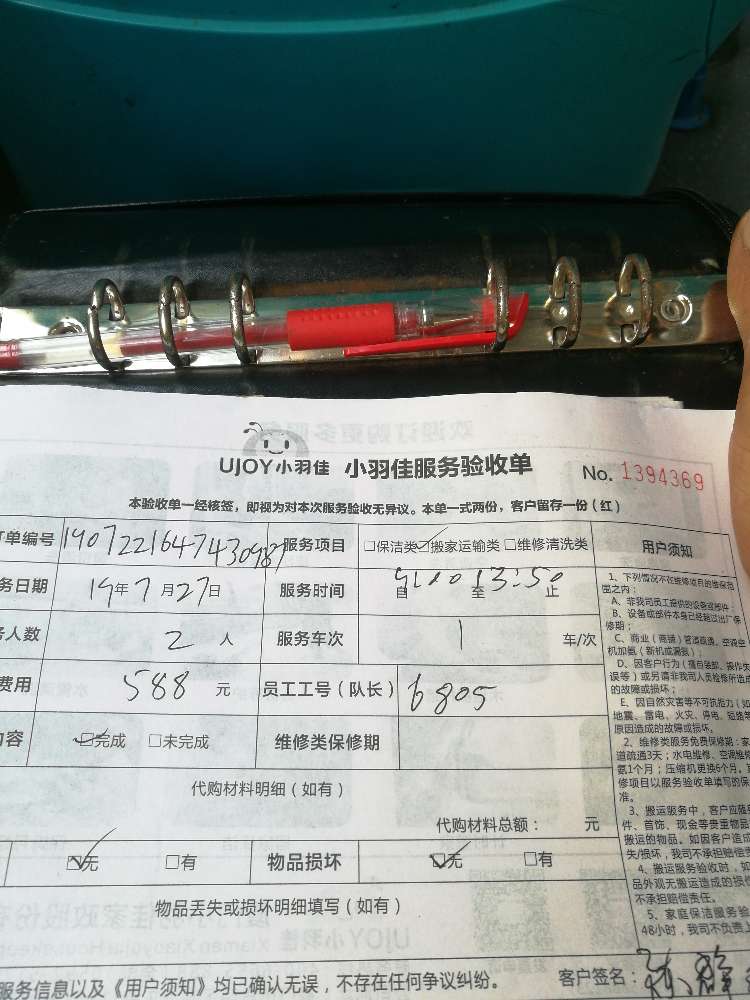 UJOY小羽佳 小羽佳服务验收单 No. 1394369
本验收单一经核签，即视为对本次服务验收无异议。本单一式两份，客户留存一份（红）
单编号 服务项目 □保洁类 ☑搬家运输类 □维修清洗类 用户须知
务日期 19年7月27日 服务时间 自 至 13:50 止
人数 2 人 服务车次 1 车/次
费用 588 元 员工工号（队长） 6805
内容 ☑完成 □未完成 维修类保修期
代购材料明细（如有）
代购材料总额： 元
☑无 □有 物品损坏 ☑无 □有
物品丢失或损坏明细填写（如有）
服务信息以及《用户须知》均已确认无误，不存在任何争议纠纷。 客户签名：
1、下列情况不在维修项目的维保范
围之内：
A、非我司员工提供的设备或部件；
B、设备或部件本身已经超过出厂保
修期；
C、商业（商铺）管道疏通、空调空
机加氨（新机或漏氨）；
D、因客户行为（擅自装卸、操作失
误等）或另请非我司人员检修所造成
的故障或损坏；
E、因自然灾害等不可抗能力（如
地震、雷电、火灾、停电、短路等
原因造成的故障或损坏。
2、维修类服务免费保修期：家
道疏通3天；水电维修、空调维修
氨1个月；压缩机更换6个月。
修项目以服务验收单填写的保
准。
3、搬运服务中，客户应
件、首饰、现金等贵重物品
搬运的物品。如因客户造成
失/损坏，我司不承担赔偿责
4、搬运服务验收时，如
品外观无搬运造成的损
不承担赔偿责任。
5、家庭保洁服务验
48小时，我司不负责上